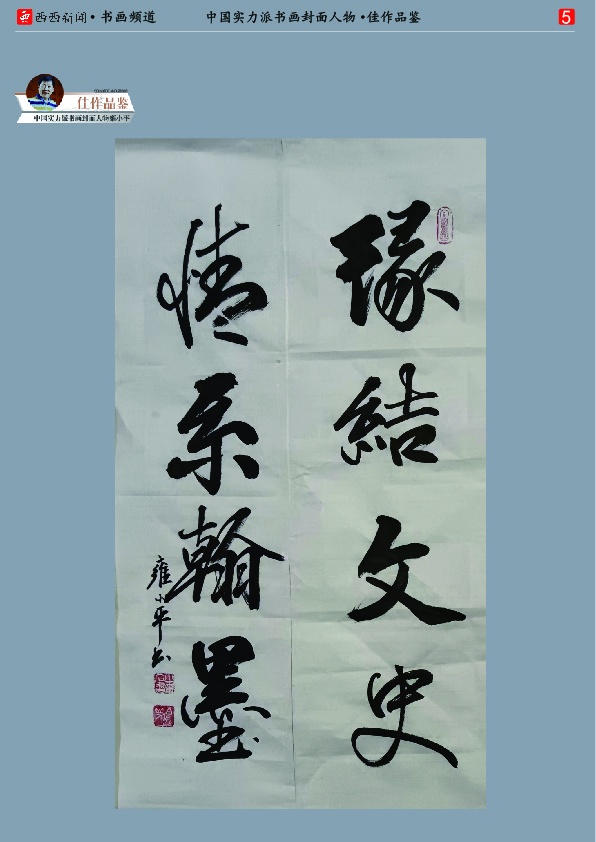 西西新闻·书画频道
中国实力派书画封面人物·佳作品鉴
5
佳作品鉴
中国实力派书画封面人物雍小平
緣結文史
情系翰墨
雍小平书